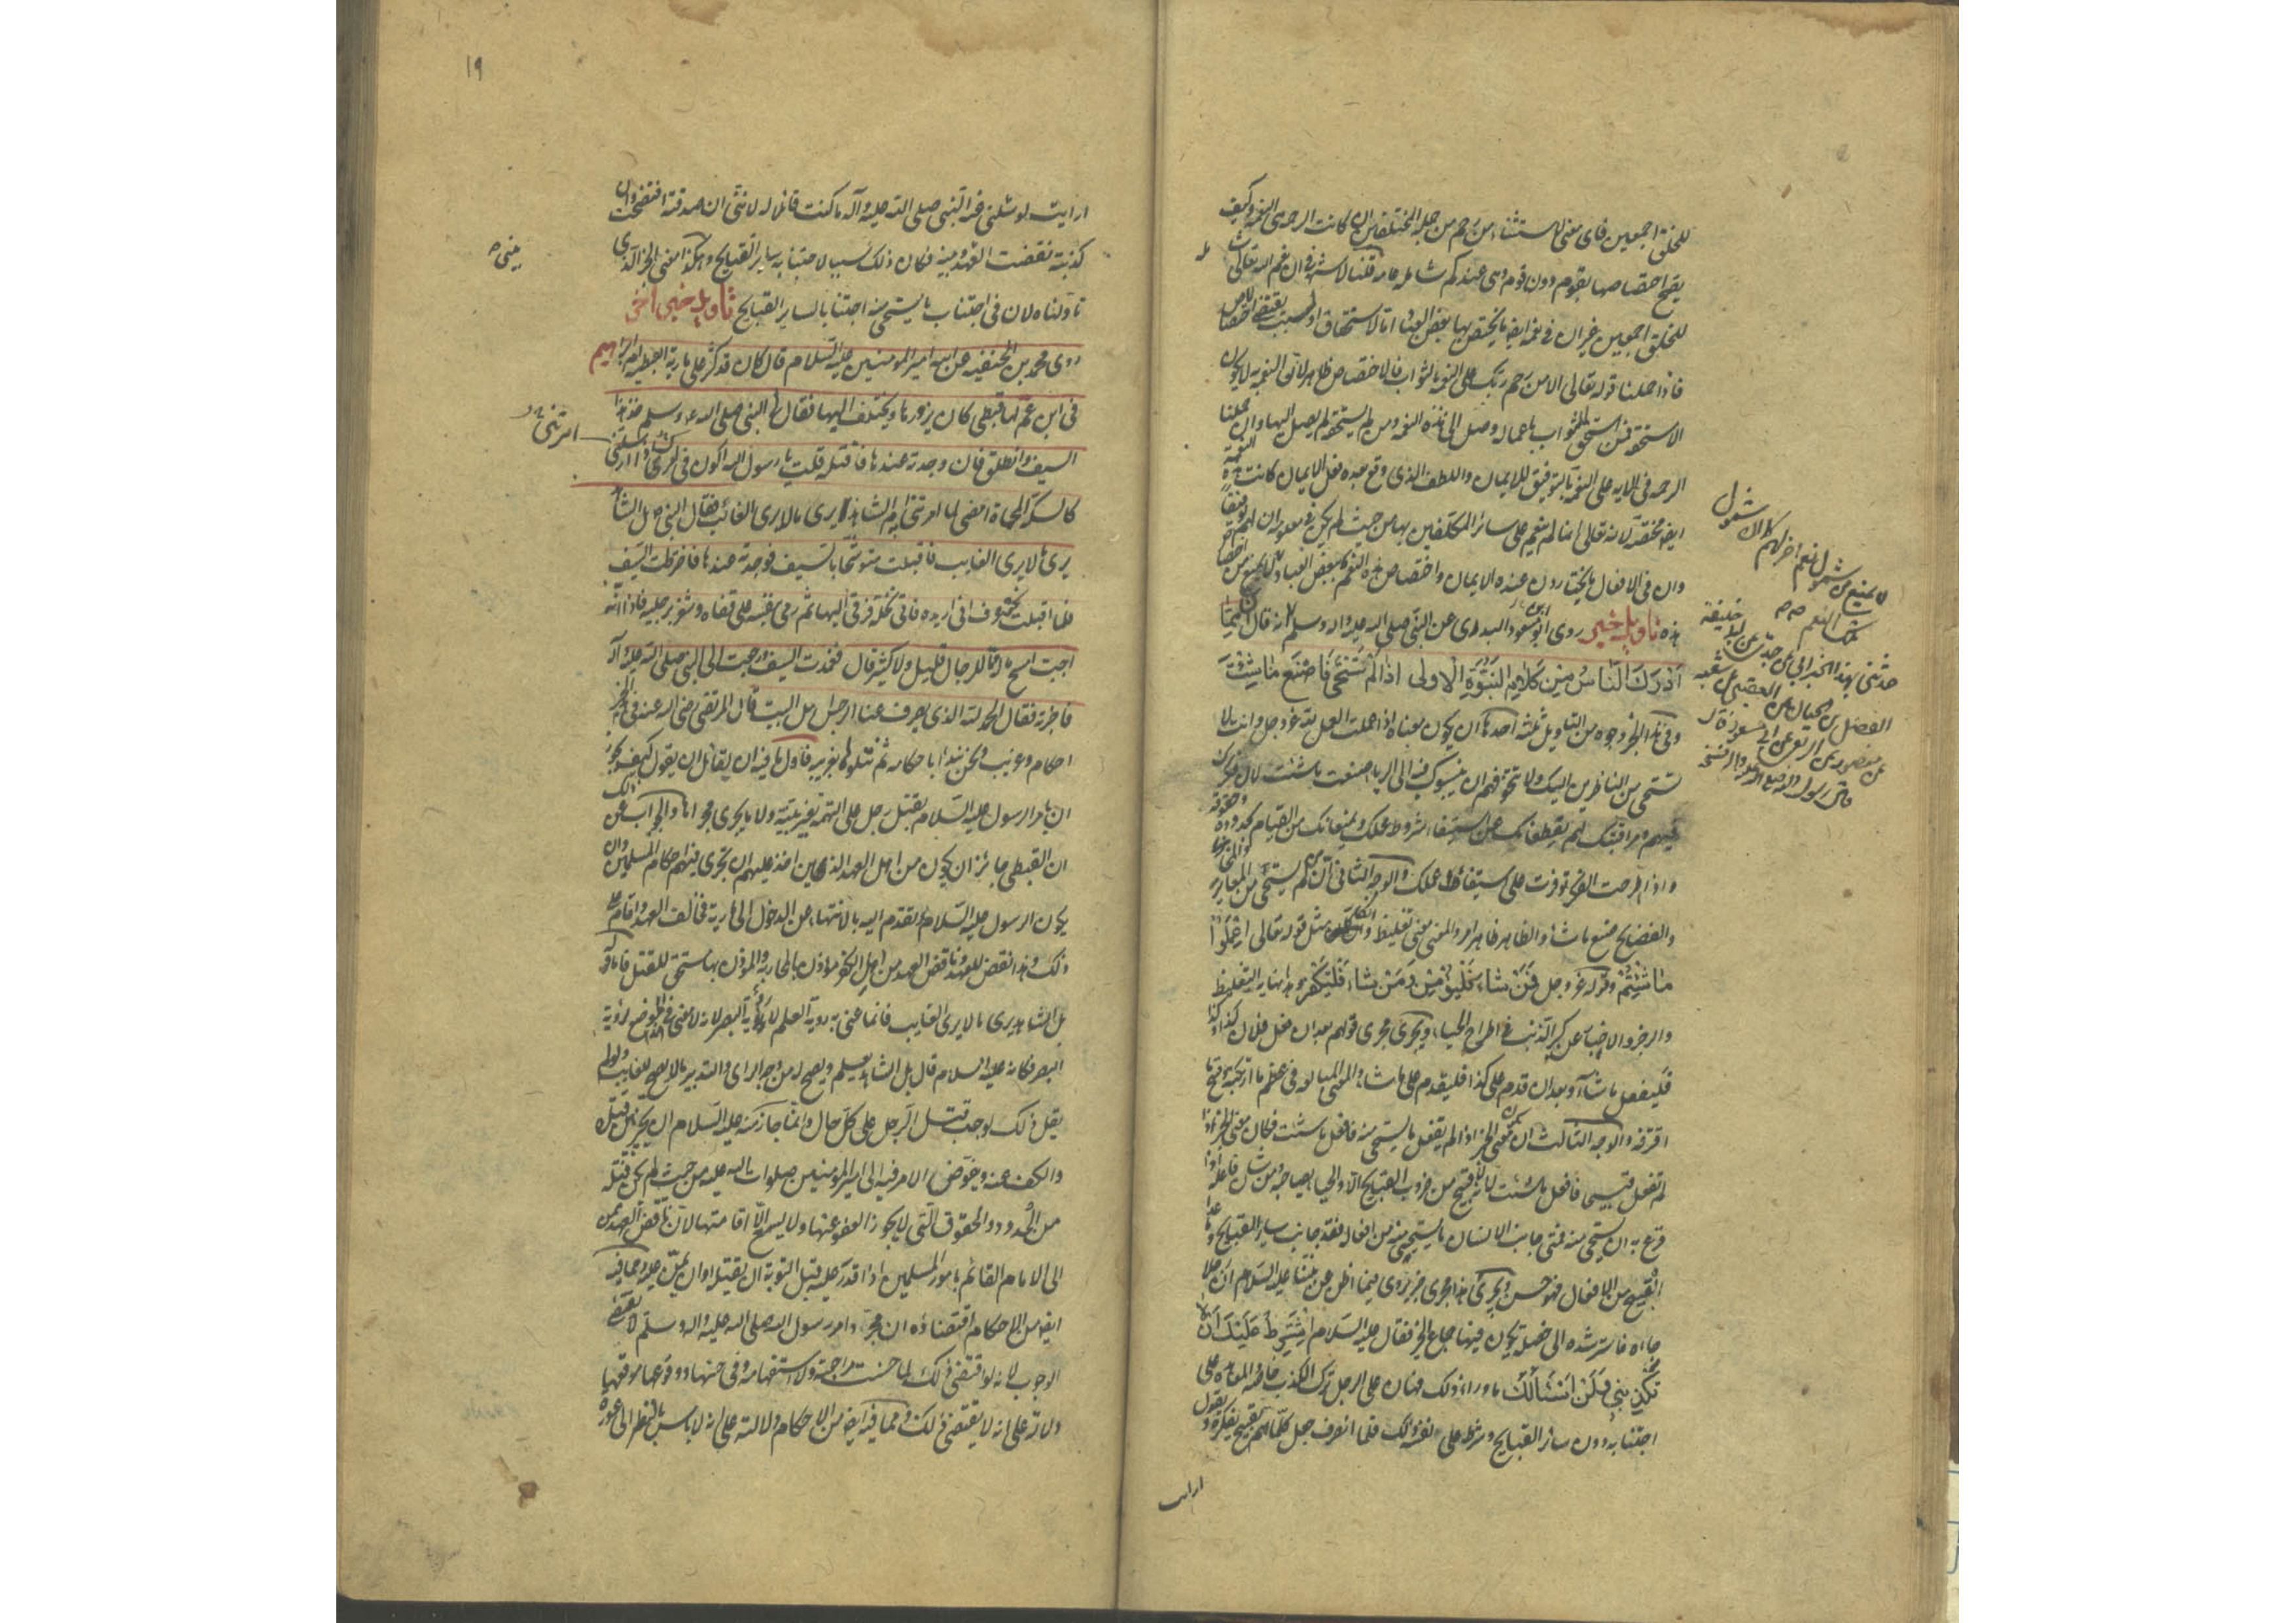 للخلق اجمعين فاى معنى للاستثناء من رحم من جملة المختلفين ان كانت الرحمة هى النعمة وكيف
يصح اختصاصها بقوم دون قوم وهى عندكم شاملة عامة قلنا لا شبهة فى ان نعم الله تعالى
للخلق اجمعين غير ان فى نعمه ايضا ما يختص بها بعض العباد اما لاستحقاق او لسبب يقتضى الاختصاص
فاذا حملنا قوله تعالى الا من رحم ربك على النعمة بالثواب فالاختصاص ظاهر لان النعمة به لا يكون
الا مستحقة فمن استحق الثواب باعماله وصل الى هذه النعمة ومن لم يستحقه لم يصل اليها وان حملنا
الرحمة فى الاية على النعمة بالتوفيق للايمان واللطف الذى وقع بعده فعل الايمان كانت هذه النعمة
ايضا مختصة لانه تعالى انما لم ينعم على سائر المكلفين بها من حيث لم يكن فى معلومه ان لهم توفيقا
وان فى الافعال ما يختارون عنده الايمان واختصاص هذه النعم ببعض العباد لا يمنع من
هذه تاويل خبر روى ابو مسعود البدرى عن النبى صلى الله عليه واله وسلم انه قال ان مما
اَدْرَكَ النَّاسُ مِنْ كَلَامِ النُّبُوَّةِ الْاُولى اِذَا لَمْ تَسْتَحْىِ فَاصْنَعْ مَا شِئْتَ
وفى هذا الخبر وجوه من التاويل ثلثة احدها ان يكون معناه اذا عملت العمل لله عز وجل وانت لا
تستحى من الناظرين اليك ولا تتخوفهم ان ينسبوك فيه الى الرياء صنعت ما شئت لان فكرك
فيهم ومراقبتك لهم يقطعانك عن استيفاء شروط عملك ويمنعانك من القيام بحدوده وحقوقه
واذا اطرحت الفكر توفرت على استيفاء عملك والوجه الثانى ان من لم يستحى من المعايير
والفضايح صنع ما شاء والظاهر ظاهر امر والمعنى معنى تغليظ وانكار مثل قوله تعالى اِعْمَلُوا
مَا شِئْتُمْ وقوله عز وجل فَمَنْ شَاءَ فَلْيُؤْمِنْ وَمَنْ شَاءَ فَلْيَكْفُرْ وهذا نهاية التغليظ
والزجر والاخبار عن كبر الذنب فى اطراح الحياء ويجرى مجرى قولهم بعد ان فعل فلان كذا وكذا
فليفعل ما شاء وبعد ان قدم على كذا فليقدم على ما شاء والمعنى المبالغة فى عظم ما ارتكبه وقبح ما
اقترفه والوجه الثالث ان يكون معنى الخبر اذا لم تفعل ما يستحى منه فافعل ما شئت فكان معنى الخبر اذا
لم تفعل قبيحا فافعل ما شئت لانه لا قبيح من ضروب القبايح الا والحياء يصاحبه ومن شان فاعله اذا
قرع به ان يستحى منه فمتى جانب الانسان ما يستحى منه من افعاله فقد جانب ساير القبايح وما عدا
القبيح من الافعال فهو حسن ويجرى هذا مجرى خبر يروى فيما اظن عن نبينا عليه السلام ان رجلا
جاءه فاسترشده الى خصلة يكون فيها جماع الخير فقال عليه السلام اَشْتَرِطُ عَلَيْكَ اَنْ لَا
تَكْذِبَنِى وَلَنْ اَسْئَالَكَ ما وراء ذلك فهان على الرجل ترك الكذب خاصة والمعاهدة على
اجتنابه دون سائر القبايح وشرط على نفسه ذلك فلما انصرف جعل كلما هم بقبيح يفكر ويقول
ارايت
لا يمنع من شمول نعم اخر لهم
حدثنى بهذا الخبر
ارايت لو سئلنى عنه النبى صلى الله عليه وآله ما كنت قائلا له لاننى ان صدقته افتضحت وان
كذبته نقضت العهد بينى وبينه فكان ذلك سببا لاجتنابه ساير القبايح وهكذا معنى الخبر الذى
تاولناه لان فى اجتناب ما يستحى منه اجتنابا لساير القبايح تاويل خبر اخر
روى محمد بن الحنفية عن ابيه امير المؤمنين عليه السلام قال كان قد كثر على مارية القبطية ام ابراهيم
فى ابن عم لها قبطى كان يزورها ويختلف اليها فقال لى النبى صلى الله عليه وسلم خذ هذا
السيف وانطلق فان وجدته عندها فاقتله قلت يا رسول الله اكون فى امرك اذا ارسلتنى
كالسكة المحماة امضى لما امرتنى ام الشاهد يرى ما لا يرى الغائب فقال النبى بل الشاهد
يرى ما لا يرى الغايب فاقبلت متوشحا بالسيف فوجدته عندها فاخترطت السيف
فلما اقبلت نحوه عرف انى اريده فاتى نخلة فرقى اليها ثم رمى بنفسه على قفاه وشغر برجليه فاذا انه
اجب امسح ما له مما للرجال قليل ولا كثير قال فغمدت السيف ورجعت الى النبى صلى الله عليه وآله
فاخبرته فقال الحمد لله الذى يصرف عنا الرجس اهل البيت قال المرتضى رضى الله عنه فى هذا الخبر
احكام وغريب ونحن نبدا باحكامه ثم نتلوها بغريبه فاول ما فيه ان يقال ان يقول كيف يجوز
ان يامر الرسول عليه السلام بقتل رجل على التهمة بغير بينة ولا ما يجرى مجراها والجواب عن ذلك
ان القبطى جائز ان يكون من اهل العهد الذين اخذ عليهم ان تجرى فيهم احكام المسلمين وان
يكون الرسول عليه السلام تقدم اليه بالانتهاء عن الدخول الى مارية فخالف العهد واقام على
ذلك وهذا نقض للعهد وناقض العهد من اهل الكفر مؤذن بالمحاربة والمؤذن بها مستحق للقتل فاما قوله
بل الشاهد يرى ما لا يرى الغايب فانما عنى به رؤية العلم لا رؤية البصر لانه لا معنى فى هذا الموضع لرؤية
البصر فكانه عليه السلام قال بل الشاهد يعلم ويصح له من وجه الراى والتدبير ما لا يصح للغايب ولو لم
يقل ذلك لوجب قتل الرجل على كل حال وانما جاز منه عليه السلام ان يخير بين قتله
والكف عنه ويفوض الامر فيه الى امير المؤمنين صلوات الله عليه من حيث لم يكن قتله
من الحدود والحقوق التى لا يجوز العفو عنها ولا يسع الا اقامتها لان ناقض العهد ممن
الى الامام القائم بامور المسلمين اذا قدر عليه قبل التوبة ان يقتله او ان يمن عليه ومما فيه
ايضا من الاحكام اقتضاؤه ان مجرد امر رسول الله صلى الله عليه واله وسلم لا يقتضى
الوجوب لانه لو اقتضى ذلك لما حسنت مراجعته ولا استفهامه وفى حسنها ووقوعها موقعها
دلالة على انه لا يقتضى ذلك ومما فيه ايضا من الاحكام دلالته على انه لا باس بالنظر الى عورة
١٩